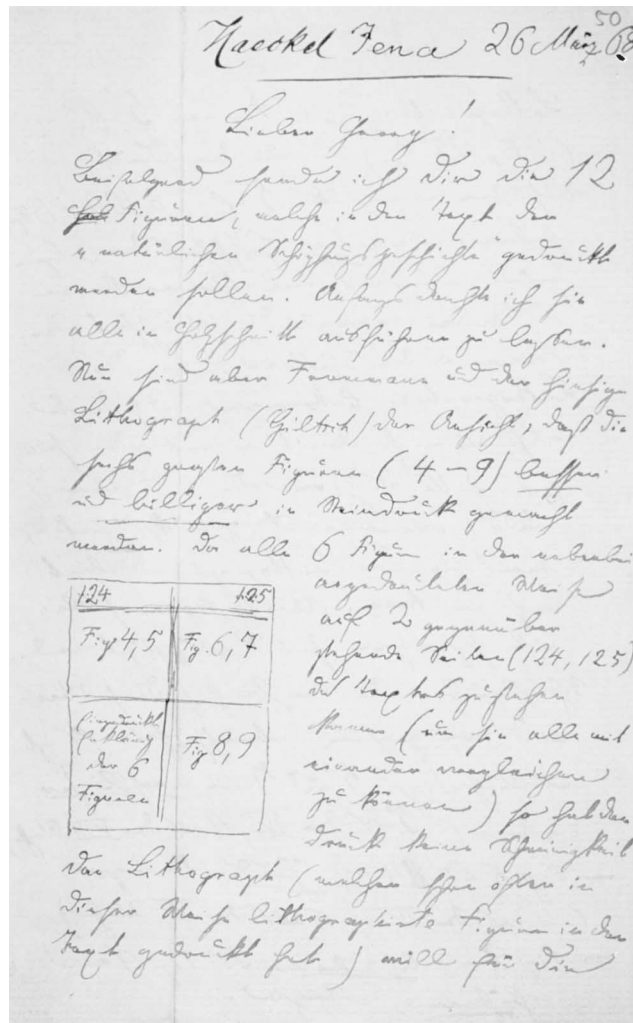 50
Haeckel Jena 26 März 68
Lieber Georg!
Beifolgend sende ich Dir die 12
Figuren, welche in den Text der
„natürlichen Schöpfungsgeschichte" gedruckt
werden sollen. Anfangs dachte ich sie
alle in Holzschnitt ausführen zu lassen.
Nun sind aber Frommann und der hiesige
Lithograph (Giltsch) der Ansicht, daß die
sechs ganzen Figuren (4–9) besser
und billiger in Steindruck gemacht
werden. Da alle 6 Figuren in der nebenbei
angedeuteten Weise
auf 2 gegenüber
stehende Seiten (124, 125)
des Textes zu stehen
kommen (um sie alle mit
einander vergleichen
zu können) so hat der
Druck keine Schwierigkeit
124 125
Fig 4, 5 Fig. 6, 7
der 6 Fig 8, 9
Figuren
Der Lithograph (welcher schon öfter in
dieser Weise lithographirte Figuren in den
Text gedruckt hat) will für die